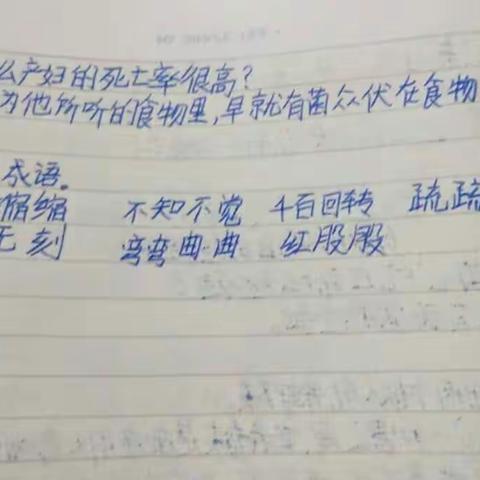 么产妇的死亡率很高?
为他所听的食物里,早就有菌众伏在食物
成语。
缩 不知不觉 千百回转 疏疏
无刻 弯弯曲曲 红股股